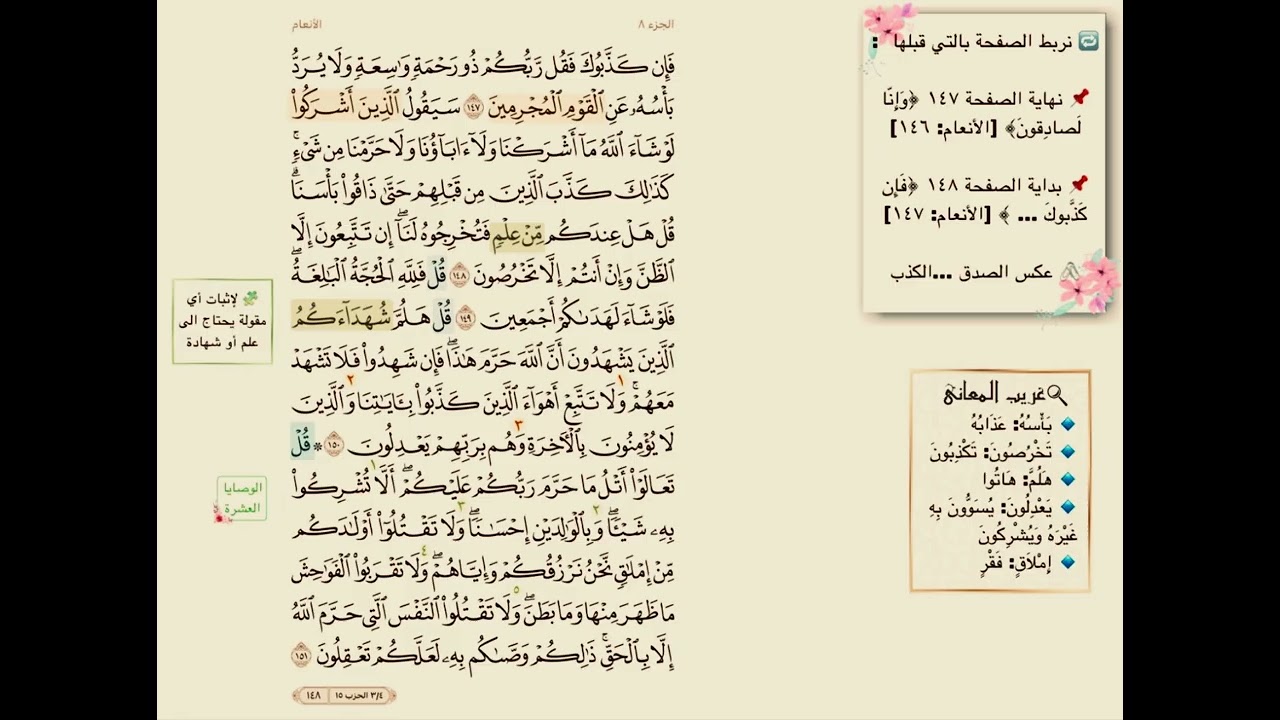 الجزء ٨
الأنعام
فَإِن كَذَّبُوكَ فَقُل رَّبُّكُمْ ذُو رَحْمَةٍ وَٰسِعَةٍ وَلَا يُرَدُّ
بَأْسُهُۥ عَنِ ٱلْقَوْمِ ٱلْمُجْرِمِينَ ١٤٧ سَيَقُولُ ٱلَّذِينَ أَشْرَكُوا۟
لَوْ شَآءَ ٱللَّهُ مَآ أَشْرَكْنَا وَلَآ ءَابَآؤُنَا وَلَا حَرَّمْنَا مِن شَىْءٍۚ
كَذَٰلِكَ كَذَّبَ ٱلَّذِينَ مِن قَبْلِهِمْ حَتَّىٰ ذَاقُوا۟ بَأْسَنَاۗ
قُلْ هَلْ عِندَكُم مِّنْ عِلْمٍ فَتُخْرِجُوهُ لَنَآۖ إِن تَتَّبِعُونَ إِلَّا
ٱلظَّنَّ وَإِنْ أَنتُمْ إِلَّا تَخْرُصُونَ ١٤٨ قُلْ فَلِلَّهِ ٱلْحُجَّةُ ٱلْبَٰلِغَةُۖ
فَلَوْ شَآءَ لَهَدَىٰكُمْ أَجْمَعِينَ ١٤٩ قُلْ هَلُمَّ شُهَدَآءَكُمُ
ٱلَّذِينَ يَشْهَدُونَ أَنَّ ٱللَّهَ حَرَّمَ هَٰذَاۖ فَإِن شَهِدُوا۟ فَلَا تَشْهَدْ
١ ٢
مَعَهُمْۚ وَلَا تَتَّبِعْ أَهْوَآءَ ٱلَّذِينَ كَذَّبُوا۟ بِـَٔايَٰتِنَا وَٱلَّذِينَ
٣
لَا يُؤْمِنُونَ بِٱلْـَٔاخِرَةِ وَهُم بِرَبِّهِمْ يَعْدِلُونَ ١٥٠ ۞ قُلْ
١
تَعَالَوْا۟ أَتْلُ مَا حَرَّمَ رَبُّكُمْ عَلَيْكُمْۖ أَلَّا تُشْرِكُوا۟
٢ ٣
بِهِۦ شَيْـًٔاۖ وَبِٱلْوَٰلِدَيْنِ إِحْسَٰنًاۖ وَلَا تَقْتُلُوٓا۟ أَوْلَٰدَكُم
٤
مِّنْ إِمْلَٰقٍۖ نَّحْنُ نَرْزُقُكُمْ وَإِيَّاهُمْۖ وَلَا تَقْرَبُوا۟ ٱلْفَوَٰحِشَ
٥
مَا ظَهَرَ مِنْهَا وَمَا بَطَنَۖ وَلَا تَقْتُلُوا۟ ٱلنَّفْسَ ٱلَّتِى حَرَّمَ ٱللَّهُ
إِلَّا بِٱلْحَقِّۚ ذَٰلِكُمْ وَصَّىٰكُم بِهِۦ لَعَلَّكُمْ تَعْقِلُونَ ١٥١
٣/٤ الحزب ١٥ | ١٤٨
نربط الصفحة بالتي قبلها :
نهاية الصفحة ١٤٧ ﴿وَإِنّا
لَصادِقونَ﴾ [الأنعام: ١٤٦]
بداية الصفحة ١٤٨ ﴿فَإِن
كَذَّبوكَ ... ﴾ [الأنعام: ١٤٧]
عكس الصدق ...الكذب
غريب المعاني
بَأْسُهُ: عَذَابُهُ
تَخْرُصُونَ: تَكْذِبُونَ
هَلُمَّ: هَاتُوا
يَعْدِلُونَ: يُسَوُّونَ بِهِ
غَيْرَهُ وَيُشْرِكُونَ
إِمْلَاقٍ: فَقْرٍ
لإثبات أي
مقولة يحتاج الى
علم أو شهادة
الوصايا
العشرة